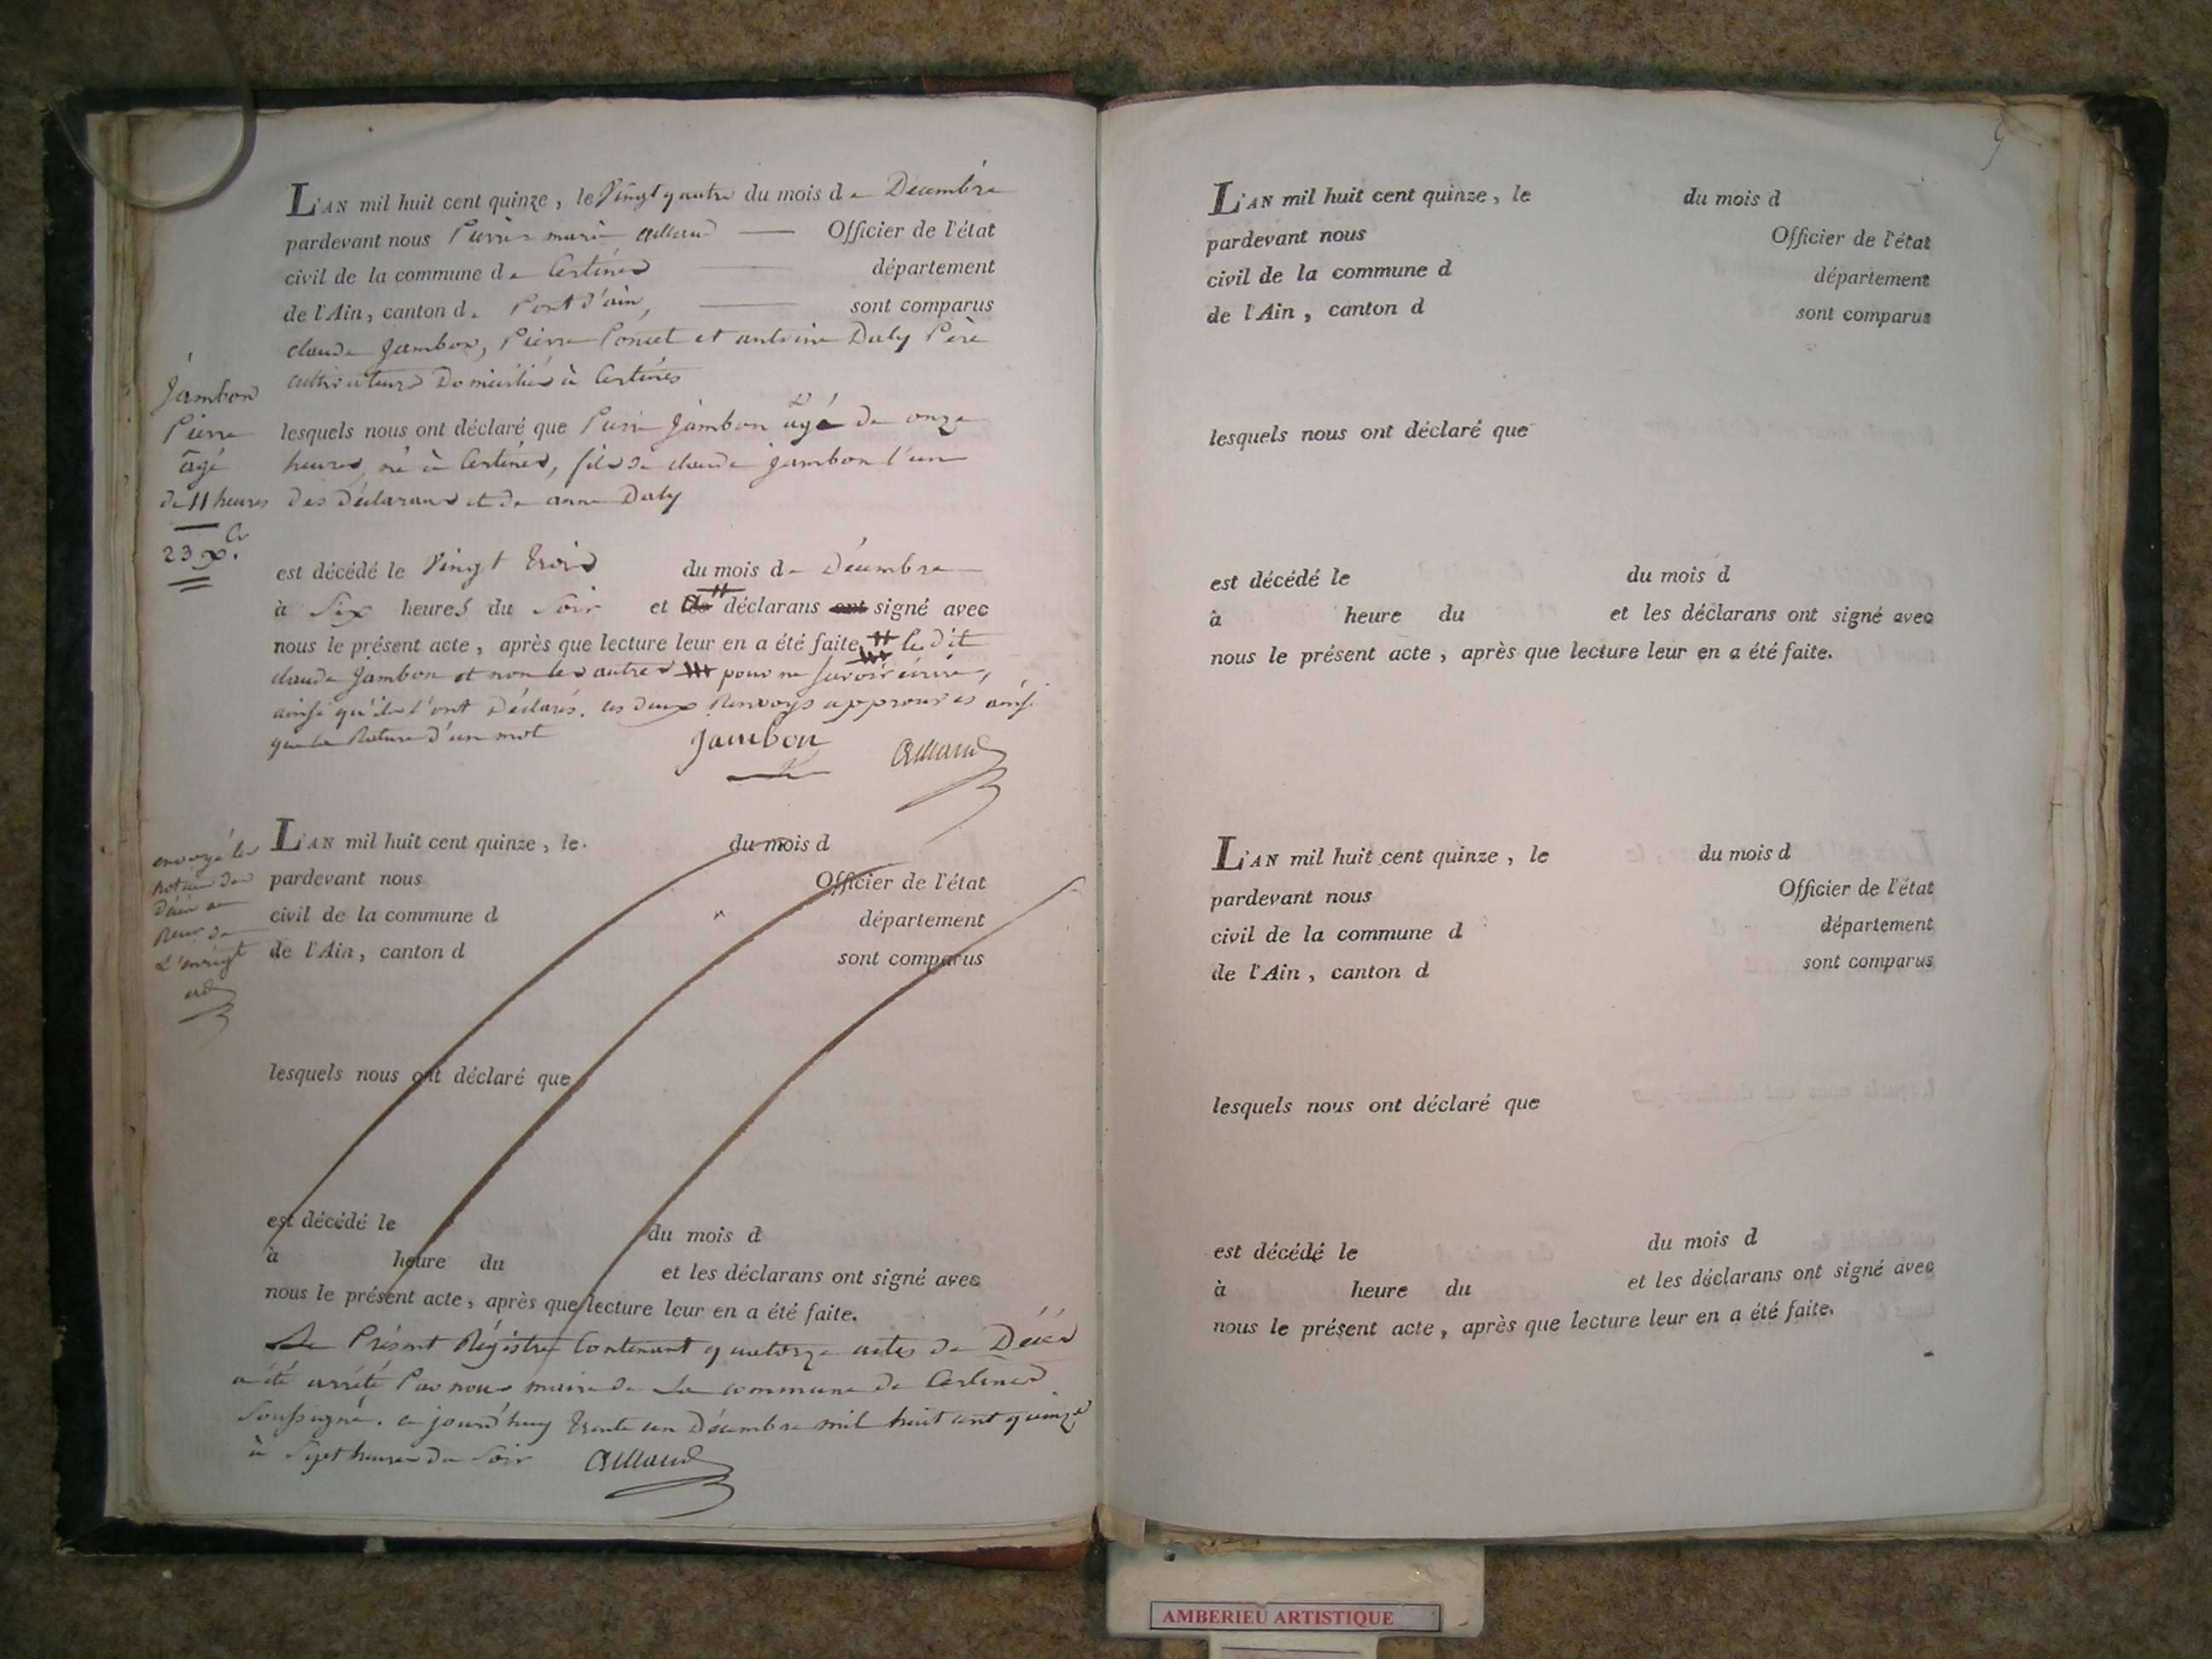 L'AN mil huit cent quinze, le Vingt quatre du mois de Decembre
pardevant nous Pierre marie Allaud Officier de l'état
civil de la commune de Certines département
de l'Ain, canton de Pont d'ain, sont comparus
claude Jambon, Pierre Poncet et antoine Daly Père
cultivateurs Domiciliés à Certines
lesquels nous ont déclaré que Pierre Jambon âgé de onze
heures, né à Certines, fils de claude Jambon l'un
des Déclarans et de anne Daly
est décédé le Vingt trois du mois de Décembre
à Six heures du Soir et déclarans ont signé avec
nous le présent acte, après que lecture leur en a été faite, le dit
claude Jambon et non les autres pour ne Savoir écrire,
ainsi qu'ils l'ont Déclarés. les deux Renvoys approuvés ainsi
que la Rature d'un mot
Jambon Allaud
Jambon
Pierre
âgé
de 11 heures
23 Xbr.
L'AN mil huit cent quinze, le. du mois d
pardevant nous Officier de l'état
civil de la commune d département
de l'Ain, canton d sont comparus
lesquels nous ont déclaré que
est décédé le du mois d
à heure du et les déclarans ont signé avec
nous le présent acte, après que lecture leur en a été faite.
envoyé les
notices des
Décès au
Recev. de
L'enregt
Le Présent Régistre Contenant quatorze actes de Décès
a été arrêté Par nous maire de La commune de Certines
Soussigné. ce jourd'huy trente un Décembre mil huit cent quinze
à Sept heures du Soir Allaud
9
L'AN mil huit cent quinze, le du mois d
pardevant nous Officier de l'état
civil de la commune d département
de l'Ain, canton d sont comparus
lesquels nous ont déclaré que
est décédé le du mois d
à heure du et les déclarans ont signé avec
nous le présent acte, après que lecture leur en a été faite.
L'AN mil huit cent quinze, le du mois d
pardevant nous Officier de l'état
civil de la commune d département
de l'Ain, canton d sont comparus
lesquels nous ont déclaré que
est décédé le du mois d
à heure du et les déclarans ont signé avec
nous le présent acte, après que lecture leur en a été faite.
AMBERIEU ARTISTIQUE